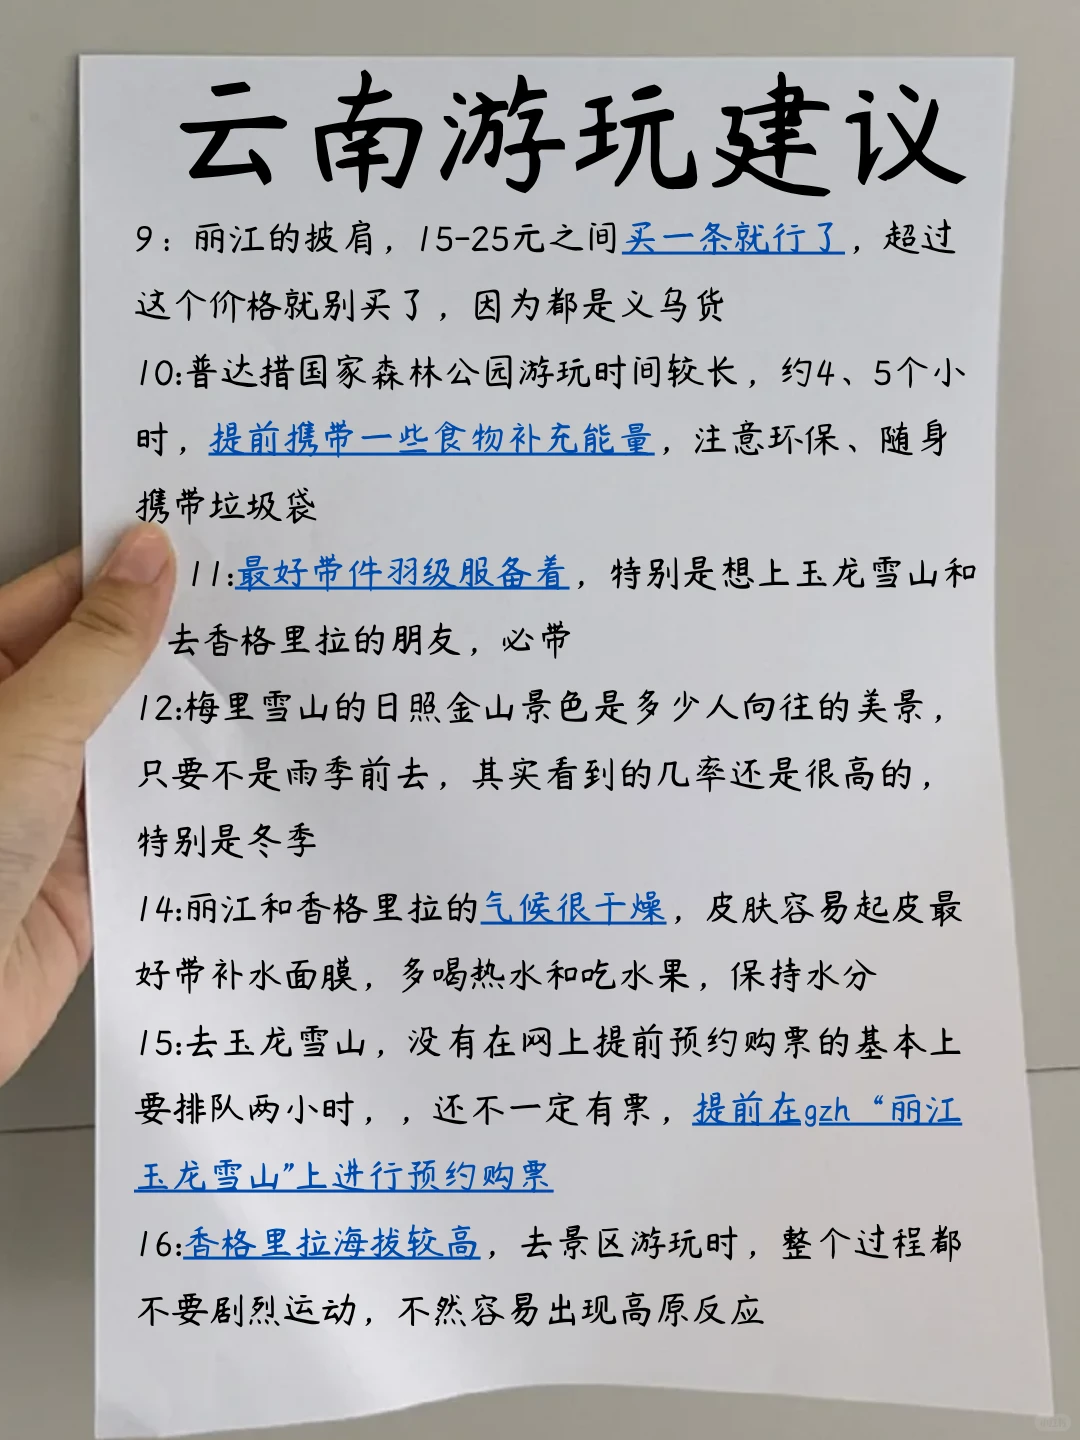 云南游玩建议
9：丽江的披肩，15-25元之间买一条就行了，超过
这个价格就别买了，因为都是义乌货
10:普达措国家森林公园游玩时间较长，约4、5个小
时，提前携带一些食物补充能量，注意环保、随身
携带垃圾袋
11:最好带件羽级服备着，特别是想上玉龙雪山和
去香格里拉的朋友，必带
12:梅里雪山的日照金山景色是多少人向往的美景，
只要不是雨季前去，其实看到的几率还是很高的，
特别是冬季
14:丽江和香格里拉的气候很干燥，皮肤容易起皮最
好带补水面膜，多喝热水和吃水果，保持水分
15:去玉龙雪山，没有在网上提前预约购票的基本上
要排队两小时，，还不一定有票，提前在gzh“丽江
玉龙雪山”上进行预约购票
16:香格里拉海拔较高，去景区游玩时，整个过程都
不要剧烈运动，不然容易出现高原反应